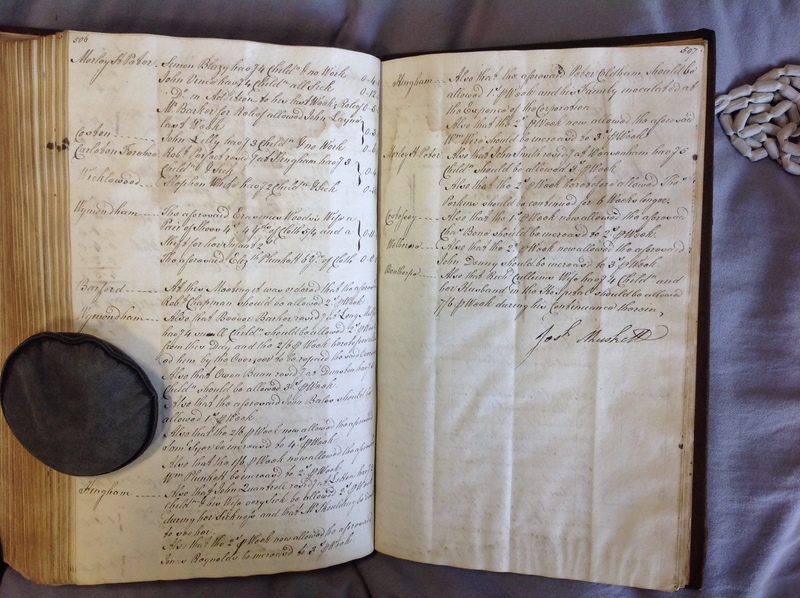 506
Morley St Peter Simon Blazy havg 4 Childn & no Work 0-4
John havg 4 Childn all Sick 0-12
Do in Addition to his last Week Relief 0-5
Mr Barker for Relief allowed John Layne
last Week 0-3
Coston John Lilly havg 3 Childn & no Work 0-6
Carleton Forehoe Robt resid'g at Hingham havg 3
Childn & Sick 0-4
Wicklewood Stephen White havg 2 Childn & Sick
Wymondham The aforesaid Erasmus Woods's Wife a
Pair of Shoes 4s 4 yds of Cloth 5/4 and a
for her Infant 2s 6d 0-11
The aforesaid Elizth Plunkett 6 yds of Cloth
Barford At this Meeting it was ordered that the aforesaid
Robt Chapman should be allowed 2s p Week
Wymondham Also that Barker resid'g at Long
havg 4 small Childn should be allowed 2s p Week
from this Day and the 2/6 p Week
ed them by the Overseer to be repaid the said
Also that Owen Bunn resid'g at havg
Childn should be allowed 3s p Week
Also that the aforesaid John Bales should be
allowed 1s p Week
Also that the 2/6 p Week now allowed the aforesaid
Saml be increased to 4s p Week
Also that the 1/6 p Week now allowed the aforesaid
Wm Plunkett be increased to 2s p Week
Hingham Also that John Quantrell resid'g at Letton havg
Childn & his Wife very Sick be allowed 2s p Week
during her Sickness and that Mr
to see her
Also that the 2s p Week now allowed the aforesaid
James Reynolds be increased to 3s p Week
507
Hingham Also that the aforesaid Peter Coldham should be
allowed 1s p Week and his Family inoculated at
the Expence of the Corporation
Also that the 2s p Week now allowed the aforesaid
Wm should be increased to 3s p Week
Morley St Peter Also that John Smith resid'g at havg 5
Childn should be allowed 3s p Week
Also that the 2s p Week heretofore allowed Thos
Perkins should be continued for 6 Weeks longer
Costessey Also that the 1s p Week now allowed the aforesaid
Chas Bone should be increased to 2s p Week
Welborne Also that the 2s p Week now allowed the aforesaid
John Denny should be increased to 3s p Week
Also that Richd Cullum's Wife havg 4 Childn and
her Husband in the Hospital should be allowed
7/6 p Week during his Continuance therein